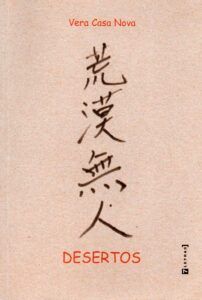 Vera Casa Nova
荒
漠
無
人
DESERTOS
7 LETRAS